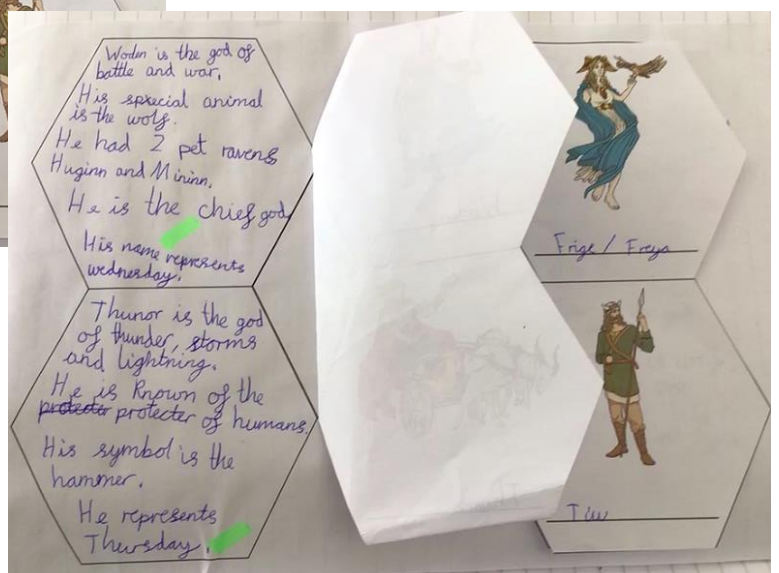 Woden is the god of
battle and war.
His special animal
is the wolf.
He had 2 pet ravens
Huginn and Mininn.
He is the chief god
His name represents
wednesday.
Thunor is the god
of thunder, storms
and lightning.
He is known of the
protecter protecter of humans.
His symbol is the
hammer.
He represents
Thursday.
Frige / Freya
Tiw